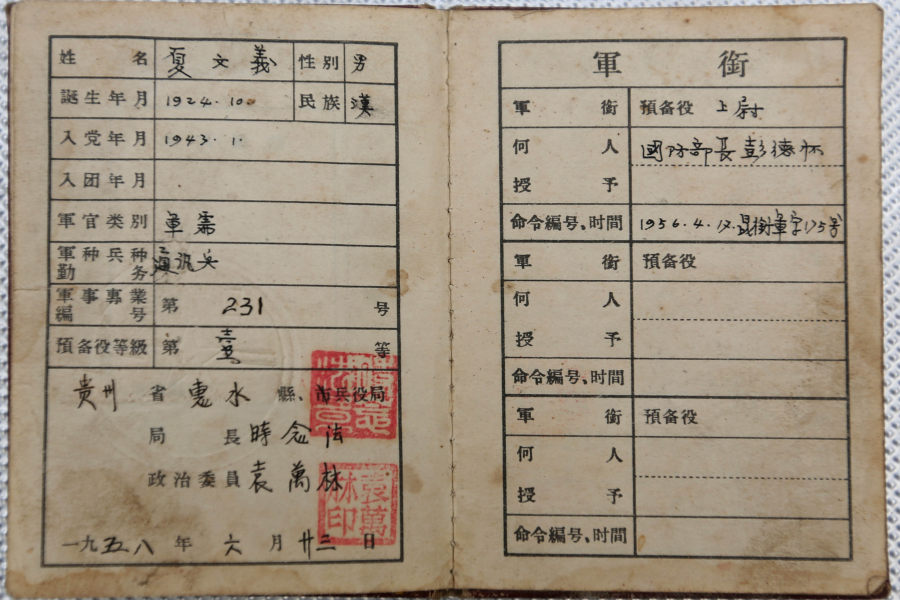 姓名 夏文義 性别 男
誕生年月 1924.10. 民族 漢
入党年月 1943.1.
入团年月
軍官类别 軍需
軍种兵种
勤务 通汛兵
軍事專業
編号 第 231 号
預备役等級 第 壹 等
贵州 省 惠水 縣、市兵役局
局長 時念法
政治委員 袁萬林
一九五八年六月廿三日
軍銜
軍銜 預备役 上尉
何人 國防部長彭德怀
授予
命令編号,时间 1956.4.17.昆衔軍字175号
軍銜 預备役
何人
授予
命令編号,时间
軍銜 預备役
何人
授予
命令編号,时间